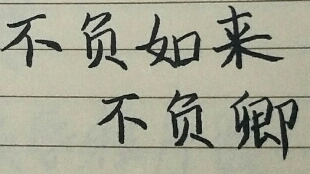 不负如来
不负卿